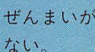 ぜんまいが
ない。